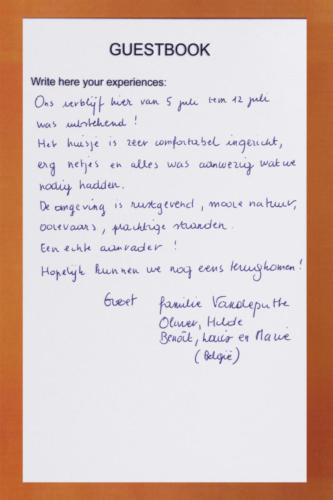 GUESTBOOK
Write here your experiences:
Ons verblijf hier van 5 juli tem 12 juli
was uitstekend !
Het huisje is zeer comfortabel ingericht,
erg netjes en alles was aanwezig wat we
nodig hadden.
De omgeving is rustgevend, mooie natuur,
ooievaars, prachtige stranden.
Een echte aanrader !
Hopelijk kunnen we nog eens terugkomen !
Groet familie Vandeputte
Olivier, Hilde
Benoît, Louis en Marie
(België)